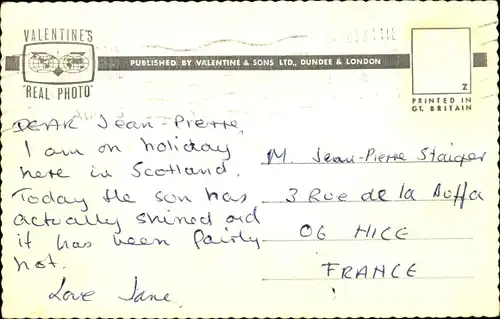 VALENTINE'S
"REAL PHOTO"
PUBLISHED BY VALENTINE & SONS LTD., DUNDEE & LONDON
Z
PRINTED IN
GT. BRITAIN
DEAR Jean-Pierre,
I am on holiday
here in Scotland.
Today the sun has
actually shined and
it has been fairly
hot.
Love Jane.
M. Jean-Pierre Staiger
3 Rue de la Buffa
06 NICE
FRANCE